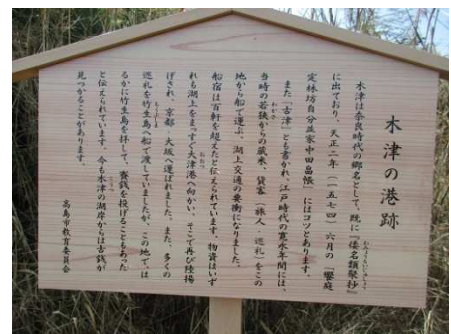 木津の港跡
木津は奈良時代の郷名として、既に『倭名類聚抄』
わみょうるいじゅしょう
に出ており、天正二年（一五七四）六月の「饗庭
定林坊自並家中田畠帳」にはコツとあります。
また「古津」とも書かれ、江戸時代の寛永年間には、
当時の若狭からの蔵米、貨客（旅人・巡礼）をこの
わかさ
地から船で運ぶ、湖上交通の要衝になりました。
船宿は百軒を超えたと伝えられています。物資はいず
れも湖上をまっすぐ大津港へ向かい、そこで再び陸揚
げされ、京都、大坂へ運ばれました。また、多くの
巡礼を竹生島へ船で渡していましたが、この地で、は
るかに竹生島を拝して、賽銭を投げることもあった
と伝えられています。今も木津の湖岸からは古銭が
見つかることがあります。
高島市教育委員会